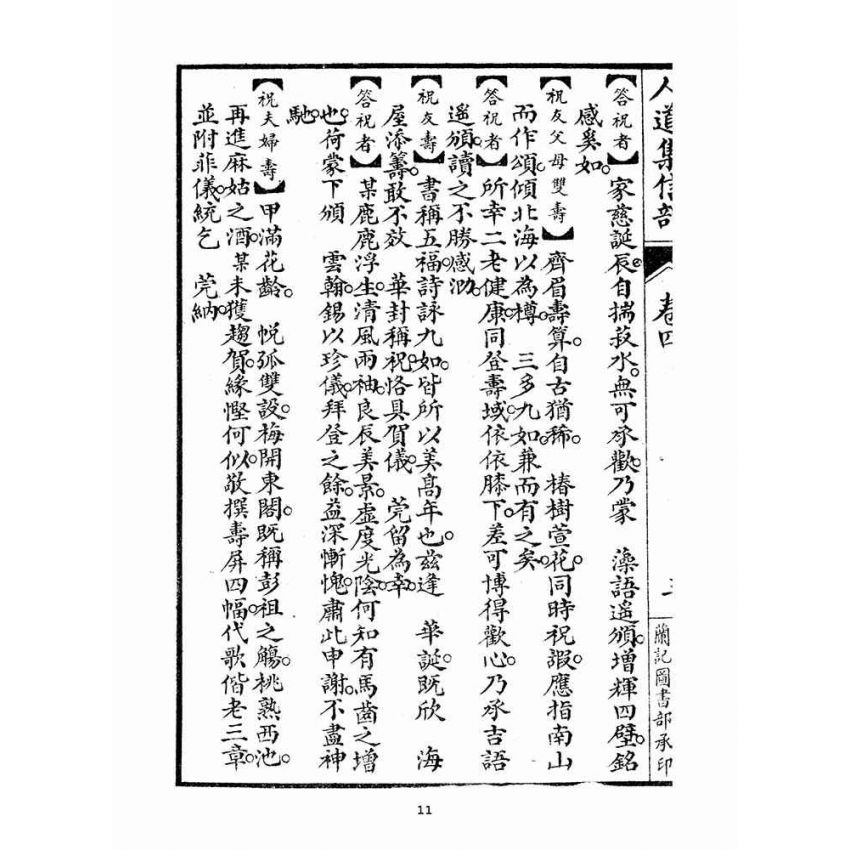 人道集信部　卷四　三　蘭記圖書部承印
【答祝者】家慈誕辰。自揣菽水。無可承歡。乃蒙　藻語遙頒。增輝四壁。銘
感奚如。
【祝友父母雙壽】齊眉壽算。自古猶稀。　椿樹萱花。同時祝嘏。應指南山
而作頌。傾北海以為樽。　三多九如。兼而有之矣。
【答祝者】所幸二老健康。同登壽域。依依膝下。差可博得歡心。乃承吉語
遙頒。讀之不勝感泐。
【祝友壽】書稱五福。詩詠九如。皆所以美高年也。茲逢　華誕。既欣　海
屋添籌。敢不效　華封稱祝。恪具賀儀。　莞留為幸。
【答祝者】某鹿鹿浮生。清風兩袖。良辰美景。虛度光陰。何知有馬齒之增
也。荷蒙下頒　雲翰。錫以珍儀。拜登之餘。益深慚愧。肅此申謝。不盡神
馳。
【祝夫婦壽】甲滿花齡。　帨弧雙設。梅開東閣。既稱彭祖之觴。桃熟西池。
再進麻姑之酒。某未獲趨賀。緣慳何似。敬撰壽屏四幅。代歌偕老三章。
並附菲儀。統乞　莞納。
11